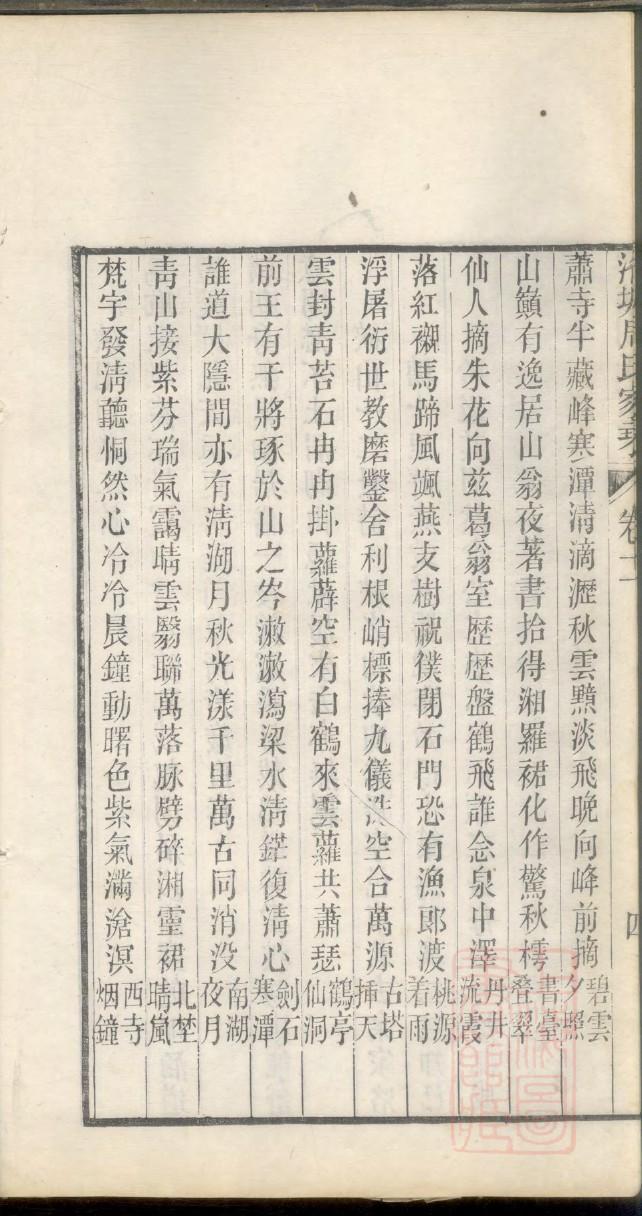 周氏家 卷二
四
蕭寺半藏峰寒潭清滴瀝秋雲黯淡飛晚向峰前摘 碧雲夕照
山籟有逸居山翁夜著書拾得湘羅裙化作驚秋樗 書臺叠翠
仙人摘朱花向茲葛翁室歷歷盤鶴飛誰念泉中澤 丹井流霞
落紅襯馬蹄風颯燕支樹祝僕閉石門恐有漁郎渡 桃源着雨
浮屠衍世教磨鑿舍利根峭標捧九儀浩空合萬源 古塔插天
雲封靑苔石冉冉掛蘿薜空有白鶴來雲蘿共蕭瑟 鶴亭仙洞
前王有干將琢於山之岑潄潄瀉梁水淸鋅復淸心 劍石寒潭
誰道大隱間亦有淸湖月秋光漾千里萬古同消没 南湖夜月
靑山接紫芬瑞氣靄晴雲翳聯萬落脉劈碎湘靈裙 北埜晴嵐
梵宇發淸聽恫然心冷冷晨鐘動曙色紫氣滿滄溟 西寺烟鐘